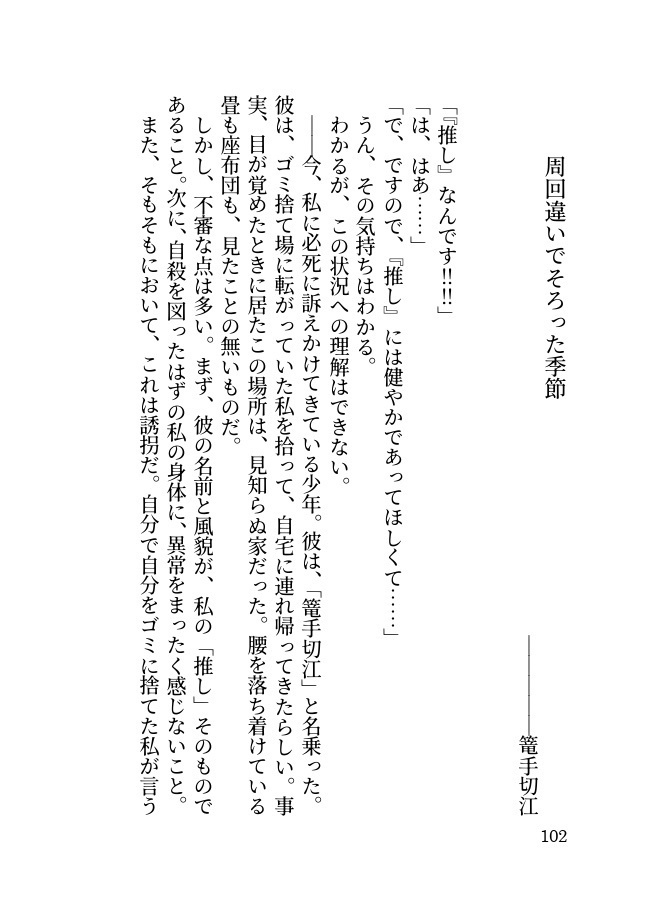 周回違いでそろった季節
――――――篭手切江
「『推し』なんです!!!!」
「は、はあ……」
「で、ですので、『推し』には健やかであってほしくて……」
うん、その気持ちはわかる。
わかるが、この状況への理解はできない。
――今、私に必死に訴えかけてきている少年。彼は、「篭手切江」と名乗った。
彼は、ゴミ捨て場に転がっていた私を拾って、自宅に連れ帰ってきたらしい。事
実、目が覚めたときに居たこの場所は、見知らぬ家だった。腰を落ち着けている
畳も座布団も、見たことの無いものだ。
しかし、不審な点は多い。まず、彼の名前と風貌が、私の「推し」そのもので
あること。次に、自殺を図ったはずの私の身体に、異常をまったく感じないこと。
また、そもそもにおいて、これは誘拐だ。自分で自分をゴミに捨てた私が言う
102